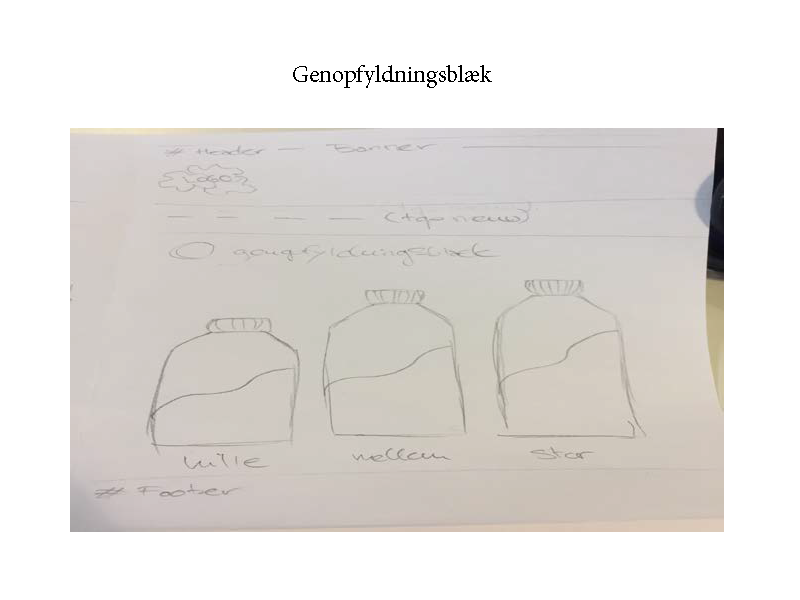 Genopfyldningsblæk
# Header — Banner
LOGO
— — — — (top menu)
genopfyldningsblæk
lille
mellem
stor
# Footer